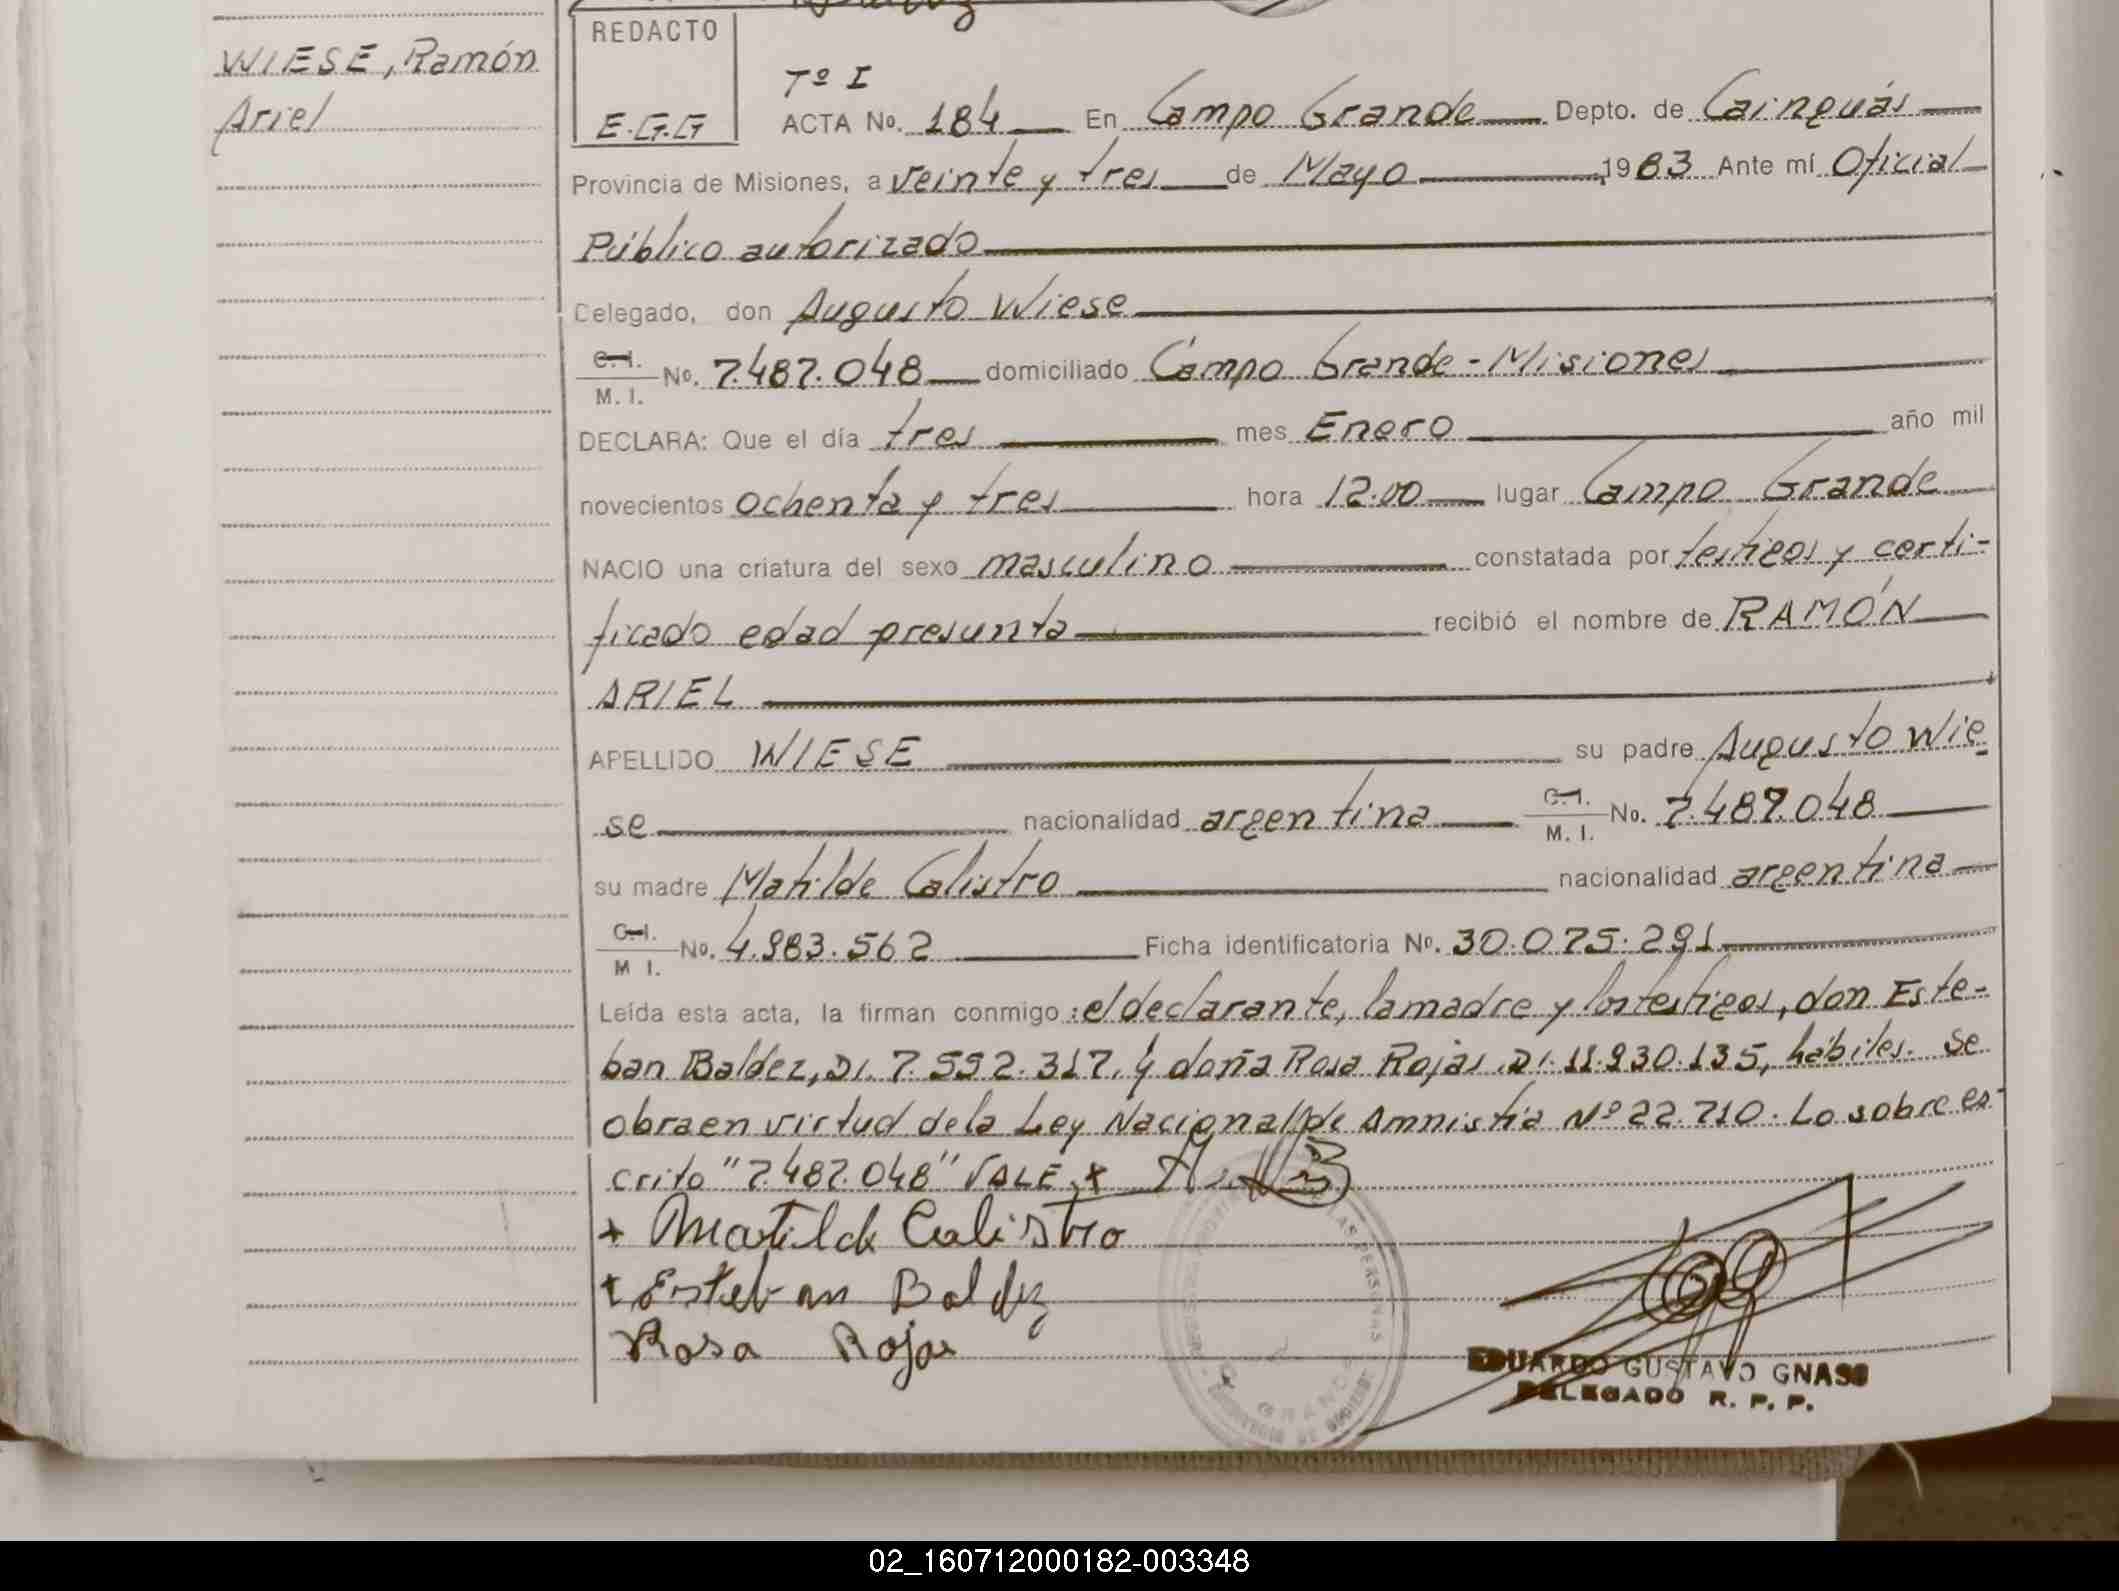 WIESE, Ramón
Ariel
REDACTO
E.G.G
Tº I
ACTA No. 184 En Campo Grande Depto. de Cainguás
Provincia de Misiones, a veinte y tres de Mayo 1983 Ante mí Oficial
Público autorizado
Delegado, don Augusto Wiese
C.I.
M. I. No. 7.487.048 domiciliado Campo Grande - Misiones
DECLARA: Que el día tres mes Enero año mil
novecientos ochenta y tres hora 12.00 lugar Campo Grande
NACIO una criatura del sexo masculino constatada por testigos y certi-
ficado edad presunta recibió el nombre de RAMÓN
ARIEL
APELLIDO WIESE su padre Augusto Wie
se nacionalidad argentina C.I. M. I. No. 7.487.048
su madre Matilde Calistro nacionalidad argentina
C.I.
M I. No. 4.983.562 Ficha identificatoria No. 30.075.291
Leída esta acta, la firman conmigo: el declarante, la madre y los testigos, don Este-
ban Baldez, DI. 7.592.317, y doña Rosa Rojas DI. 11.930.135, hábiles. Se
obra en virtud de la Ley Nacional de Amnistía Nº 22.710. Lo sobre es-
crito "7.487.048" VALE +
+ Matilde Calistro
+ Esteban Baldez
Rosa Rojas
LAS PERSONAS
GRANDE
EDUARDO GUSTAVO GNASS
DELEGADO R. P. P.
02_160712000182-003348